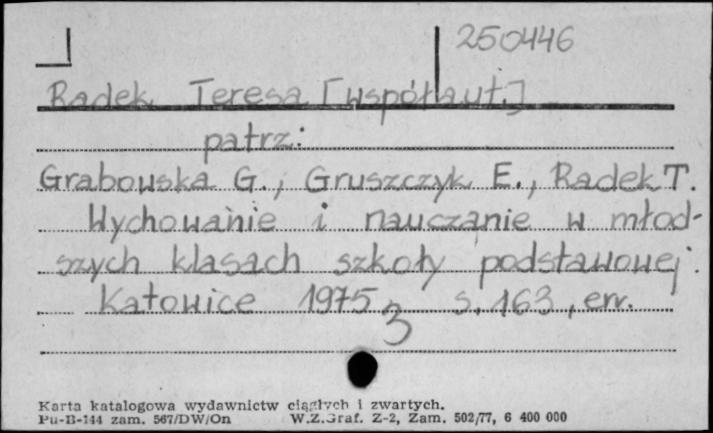 250446
Radek Teresa [współaut.]
patrz:
Grabowska G., Gruszczyk E., Radek T.
Wychowanie i nauczanie w młod-
szych klasach szkoły podstawowej.
Katowice 1975 s. 163, err.
3
Karta katalogowa wydawnictw ciągłych i zwartych.
Pu-B-144 zam. 567/DW/On W.Z.Graf. Z-2, Zam. 502/77, 6 400 000